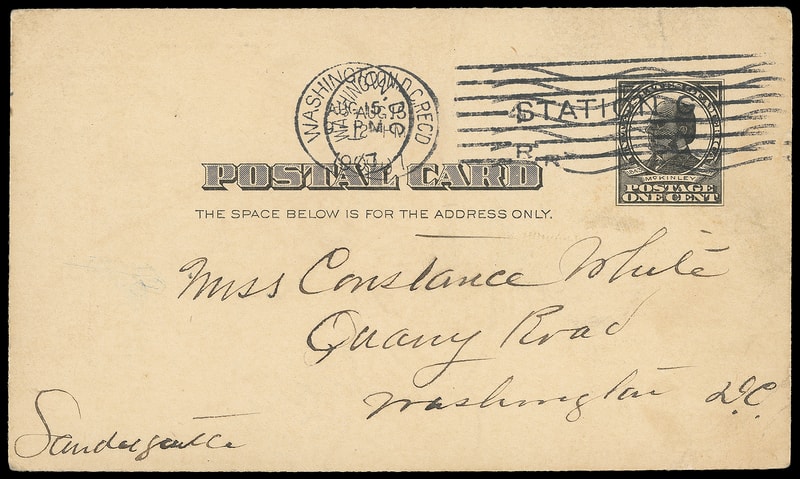 WASHINGTON, D.C. REC'D
AUG 15
1907
STATION G
POSTAL CARD
McKINLEY
POSTAGE
ONE CENT
THE SPACE BELOW IS FOR THE ADDRESS ONLY.
Miss Constance White
Quarry Road
Washington D.C.